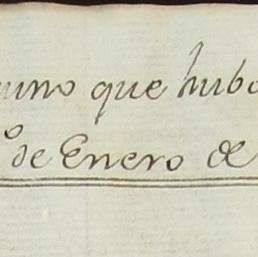 uno que hubo
o de Enero de